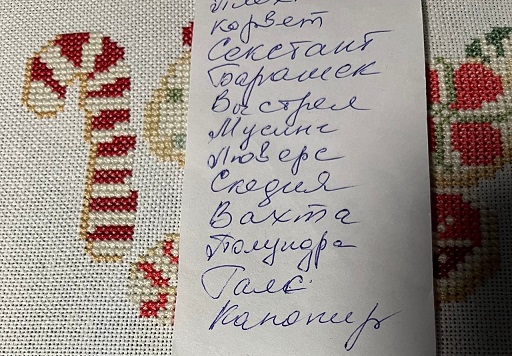 Корвет
Секстант
Барашек
Выстрел
Мусинг
Люверс
Скедия
Вахта
Полундра
Галс
Капонир